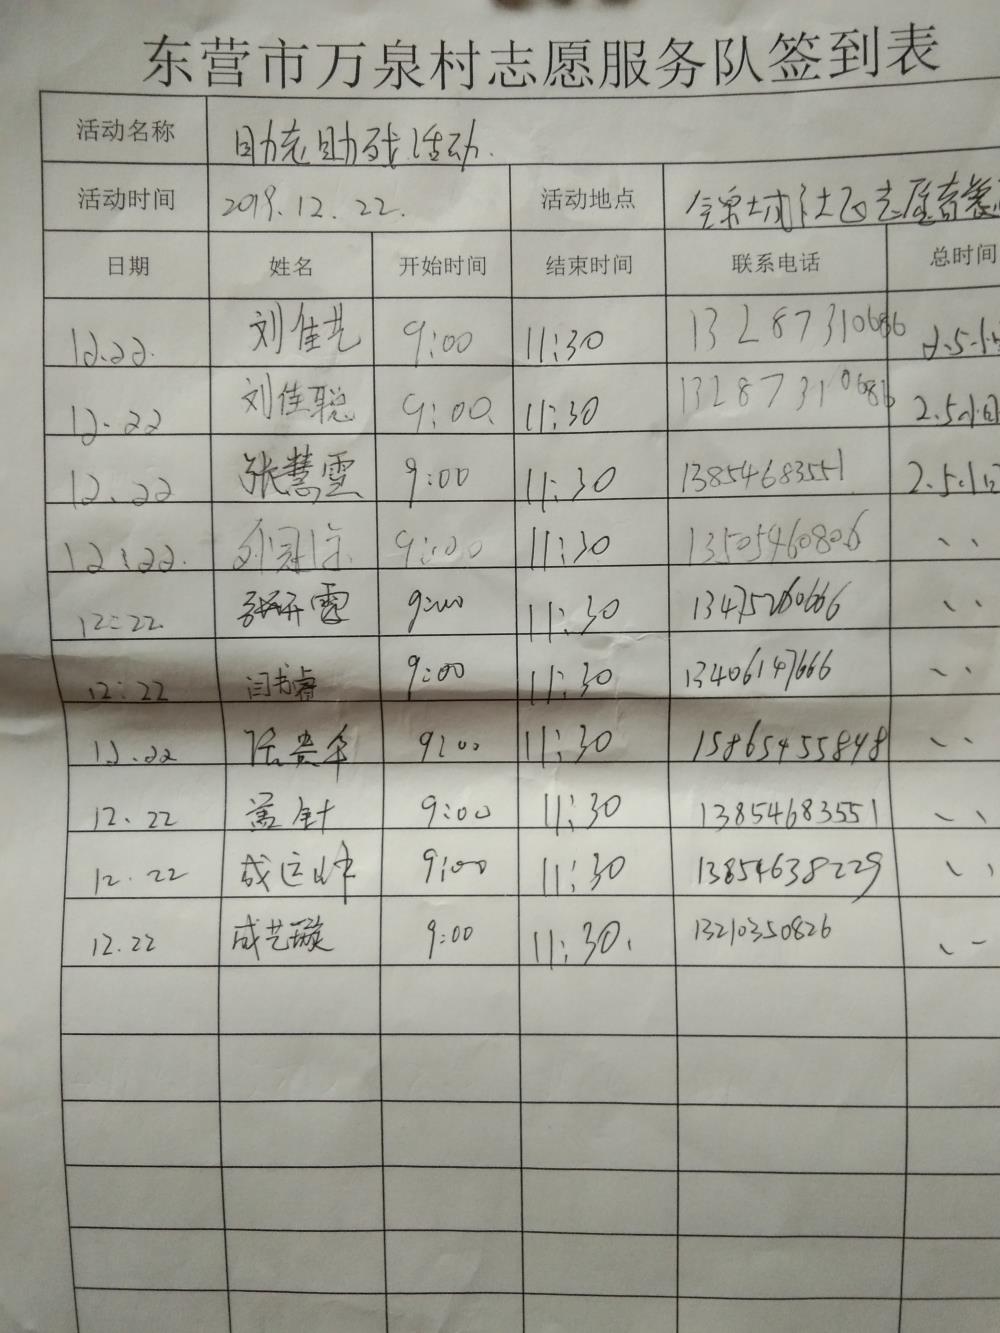 东营市万泉村志愿服务队签到表
活动名称 助老助残活动.
活动时间 2019.12.22. 活动地点 社区志愿
日期 姓名 开始时间 结束时间 联系电话 总时间
12.22. 刘佳艺 9:00 11:30 13287310686 2.5小
12.22 刘佳聪 9:00 11:30 13287310686 2.5小时
12.22 张慧雪 9:00 11:30 13854683551 2.5小
12:22. 9:00 11:30 13505460806 、、
12:22 9:00 11:30 13475260666 、、
12:22 闫书睿 9:00 11:30 13406147666 、、
12.22 9:00 11:30 15865455848 、、
12.22 9:00 11:30 13854683551 、、
12.22 9:00 11:30 13854638229 、、
12.22 成艺璇 9:00 11:30. 13210350826 、、